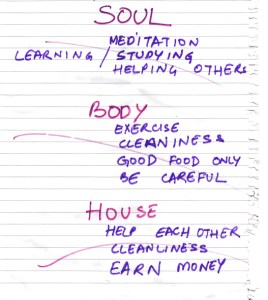 SOUL
MEDITATION
LEARNING / STUDYING
HELPING OTHERS
BODY
EXERCISE
CLEANINESS
GOOD FOOD ONLY
BE CAREFUL
HOUSE
HELP EACH OTHER
CLEANLINESS
EARN MONEY